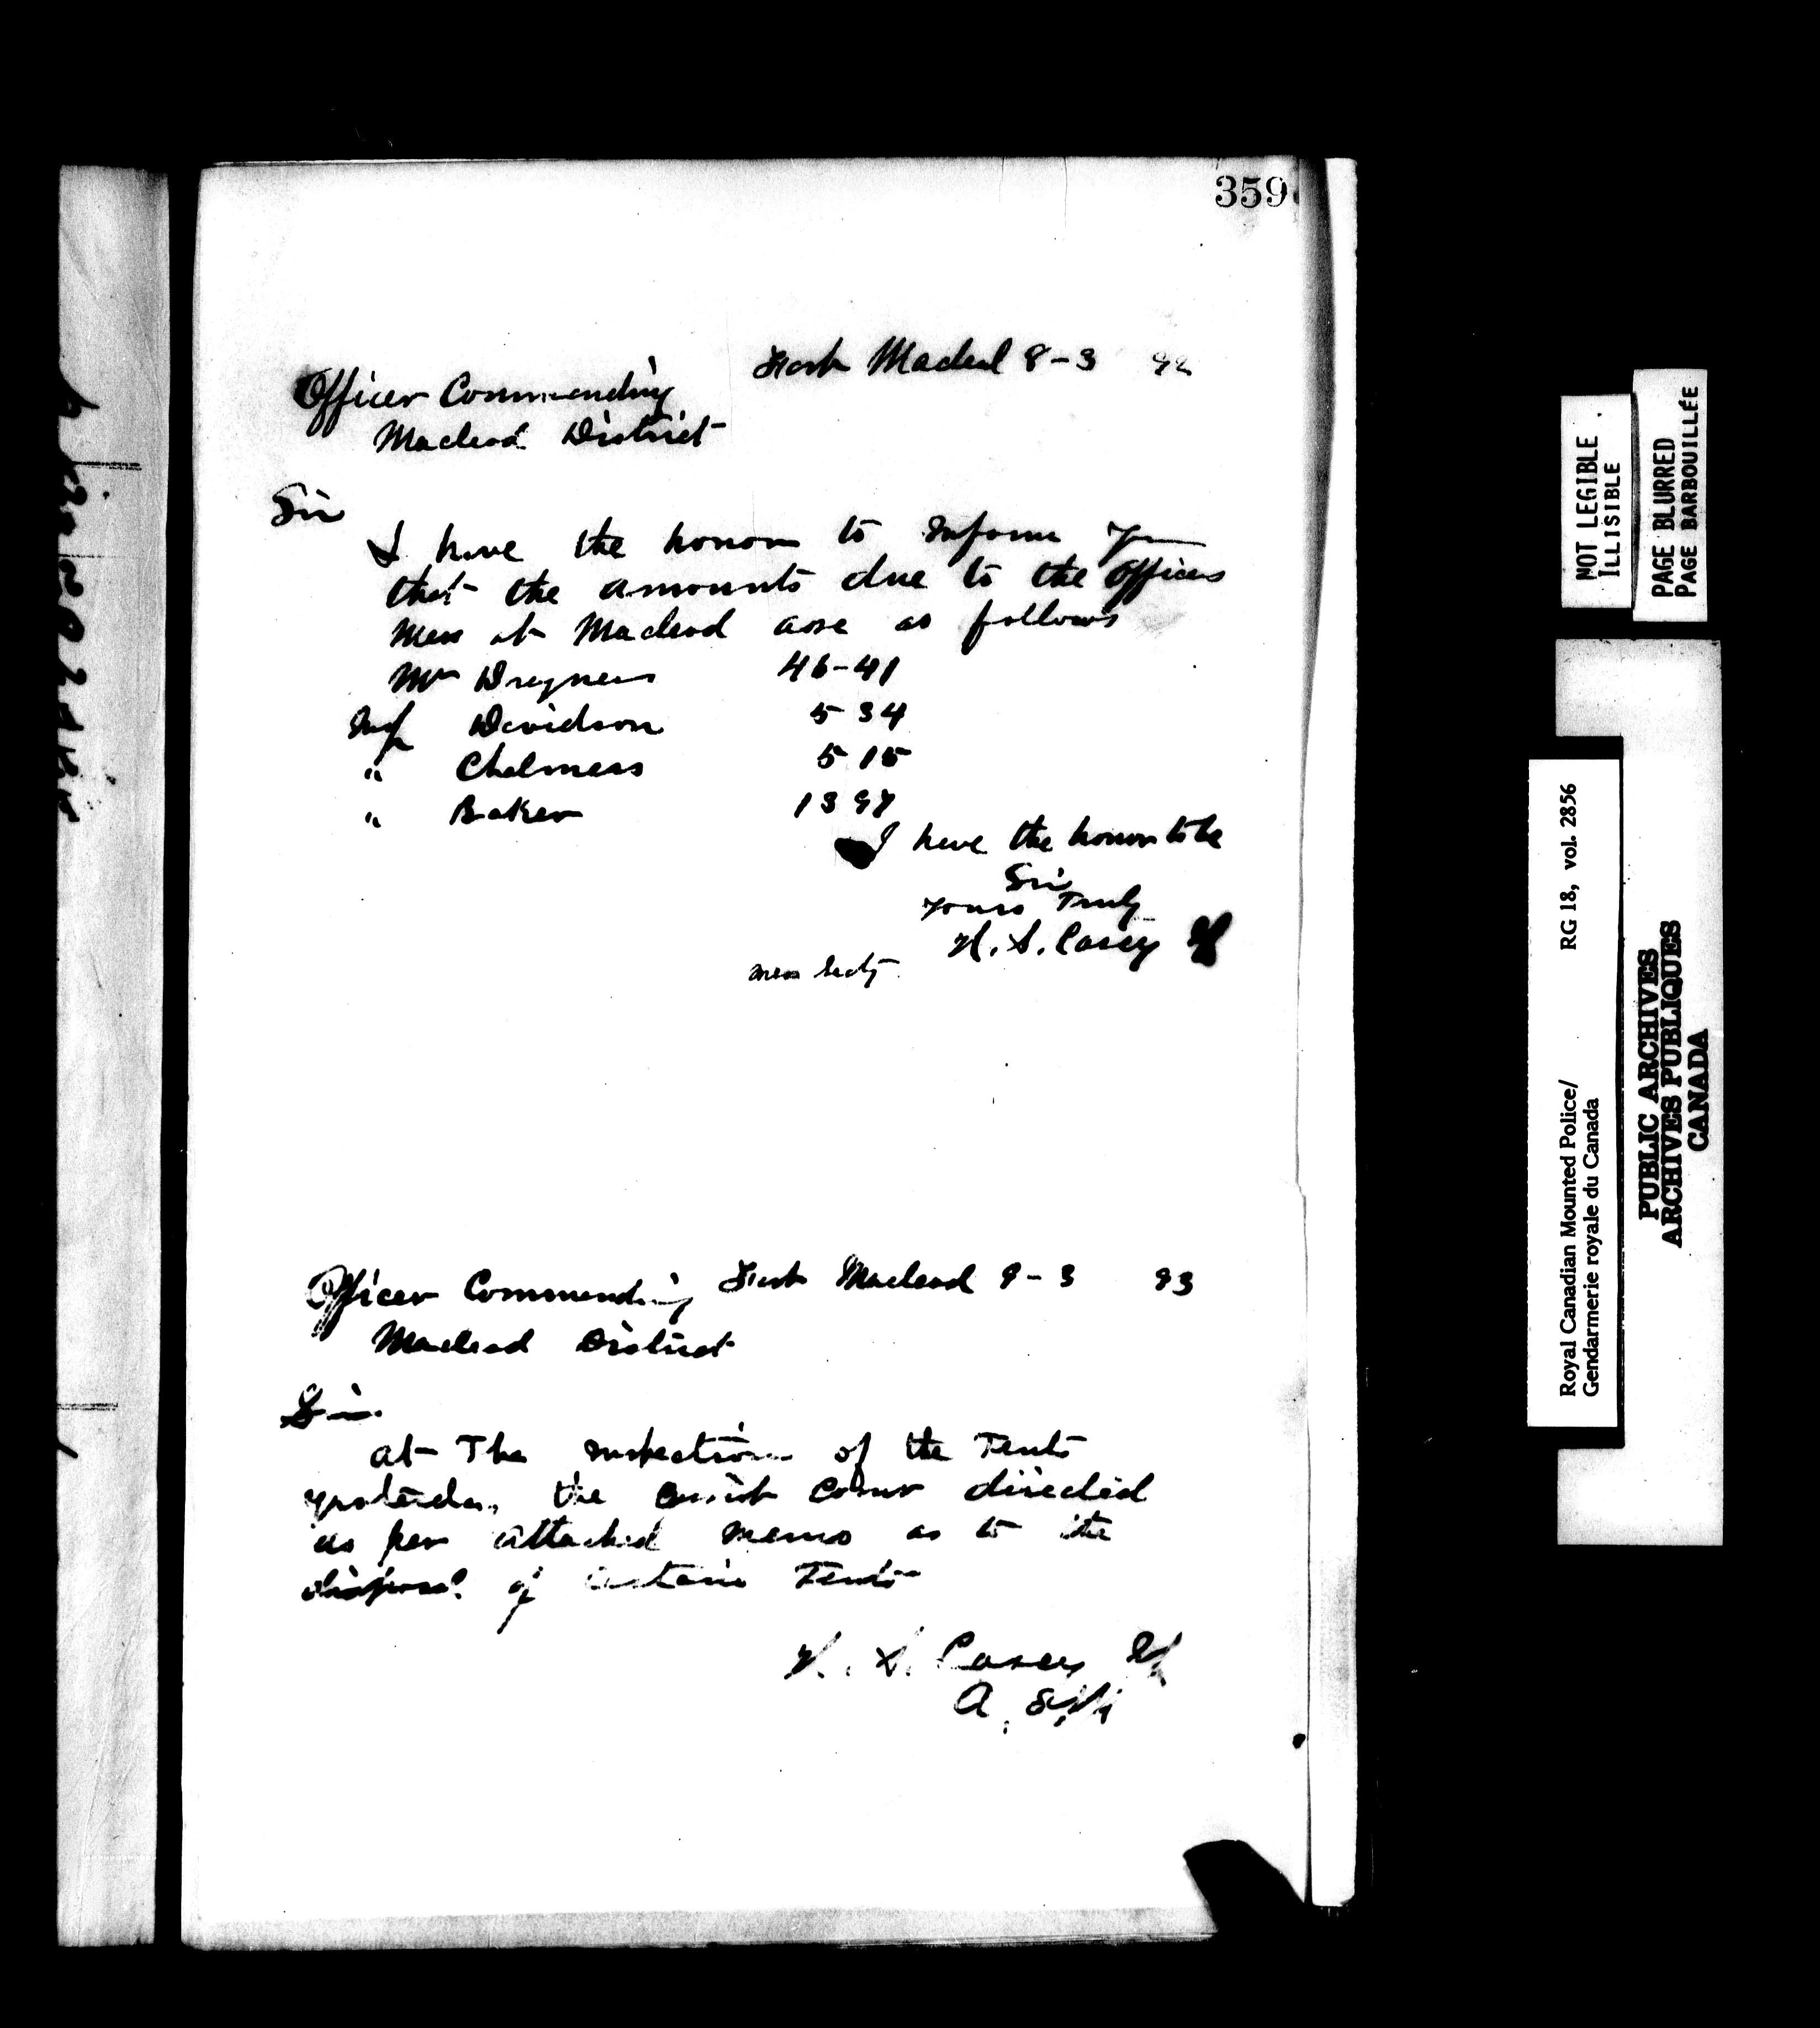 359
Fort Macleod 8-3 92
Officer Commanding
Macleod District
Sir
I have the honor to inform you
that the amounts due to the Officers
Mess at Macleod are as follows
Mr 46-41
Insp Davidson 5 34
" Chalmers 5 15
" Baker 13 97
I have the honor to be
Sir
Yours Truly
H. S. Casey
Mess Secty
Officer Commanding Fort Macleod 9-3 93
Macleod District
Sir
at The inspection of the Tents
yesterday, the Comr directed
as per attached memo as to the
disposal of certain Tents
H. S. Casey
A.
NOT LEGIBLE
ILLISIBLE
PAGE BLURRED
PAGE BARBOUILLÉE
Royal Canadian Mounted Police/ RG 18, vol. 2856
Gendarmerie royale du Canada
PUBLIC ARCHIVES
ARCHIVES PUBLIQUES
CANADA